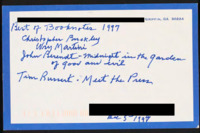 Best of Booknotes 1997
Christopher Buckley
Wry Martinis
John Berendt - midnight in the garden
of good and evil
Tim Russert - Meet the Press
1997